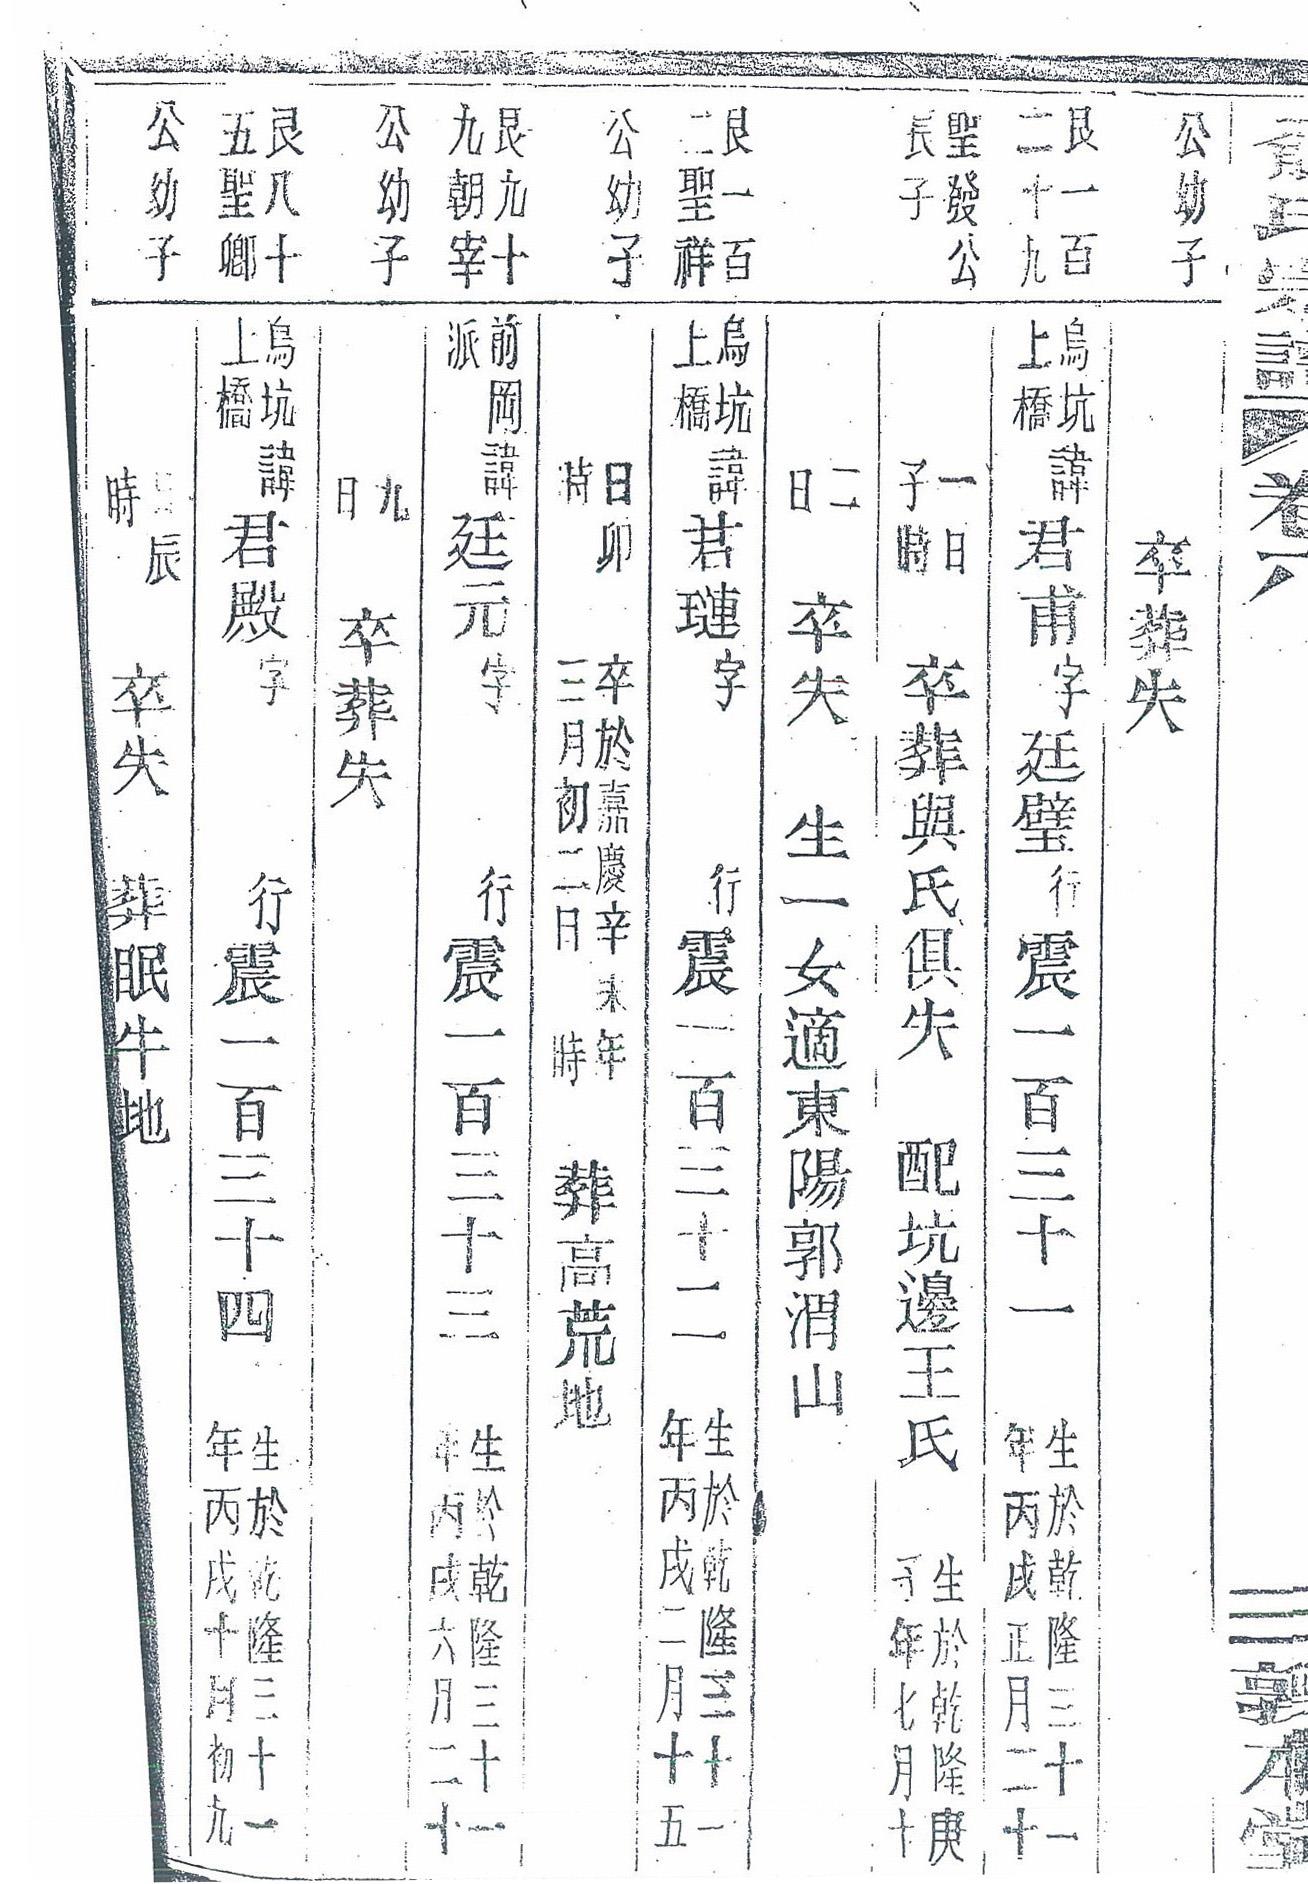 氏宗譜
卷六
敦本堂
公幼子
卒葬失
艮一百
二十九
烏坑
上橋
諱君甫字廷璧行震一百三十一
生於乾隆三十一
年丙戌正月二十
聖發公
長子
一日
子時
卒葬與氏俱失 配坑邊王氏
生於乾隆庚
子年七月十
二
日
卒失 生一女適東陽郭渭山
艮一百
二聖祥
烏坑
上橋
諱君璉字 行震一百三十二
生於乾隆三十一
年丙戌二月十五
公幼子
日卯
時
卒於嘉慶辛未年
三月初二日 時
葬高荒地
艮九十
九朝宰
前岡
派
諱廷元字 行震一百三十三
生於乾隆三十一
年丙戌六月二十
公幼子
九
日
卒葬失
艮八十
五聖卿
烏坑
上橋
諱君殿字 行震一百三十四
生於乾隆三十一
年丙戌十月初九
公幼子
日辰
時
卒失 葬眠牛地